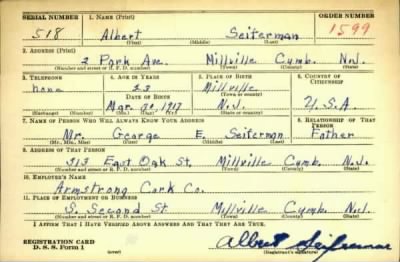 SERIAL NUMBER 1. NAME (Print) ORDER NUMBER
518 Albert Seiferman 1599
(First) (Middle) (Last)
2. ADDRESS (Print)
2 Park Ave. Millville Cumb. N.J.
(Number and street or R. F. D. number) (Town) (County) (State)
3. TELEPHONE 4. AGE IN YEARS 5. PLACE OF BIRTH 6. COUNTRY OF CITIZENSHIP
none 23 Millville
DATE OF BIRTH (Town or county)
Mar. 1917 N.J. U.S.A
(Exchange) (No.) (Mo.) (Day) (Yr.) (State or country)
7. NAME OF PERSON WHO WILL ALWAYS KNOW YOUR ADDRESS 8. RELATIONSHIP OF THAT PERSON
Mr. George E. Seiferman Father
(Mr., Mrs., Miss) (First) (Middle) (Last)
9. ADDRESS OF THAT PERSON
313 East Oak St. Millville Cumb. N.J.
(Number and street or R. F. D. number) (Town) (County) (State)
10. EMPLOYER'S NAME
Armstrong Cork Co.
11. PLACE OF EMPLOYMENT OR BUSINESS
S. Second St Millville Cumb. N.J.
(Number and street or R. F. D. number) (Town) (County) (State)
I AFFIRM THAT I HAVE VERIFIED ABOVE ANSWERS AND THAT THEY ARE TRUE.
REGISTRATION CARD
D. S. S. FORM 1 (over) Albert Seiferman
(Registrant's signature)